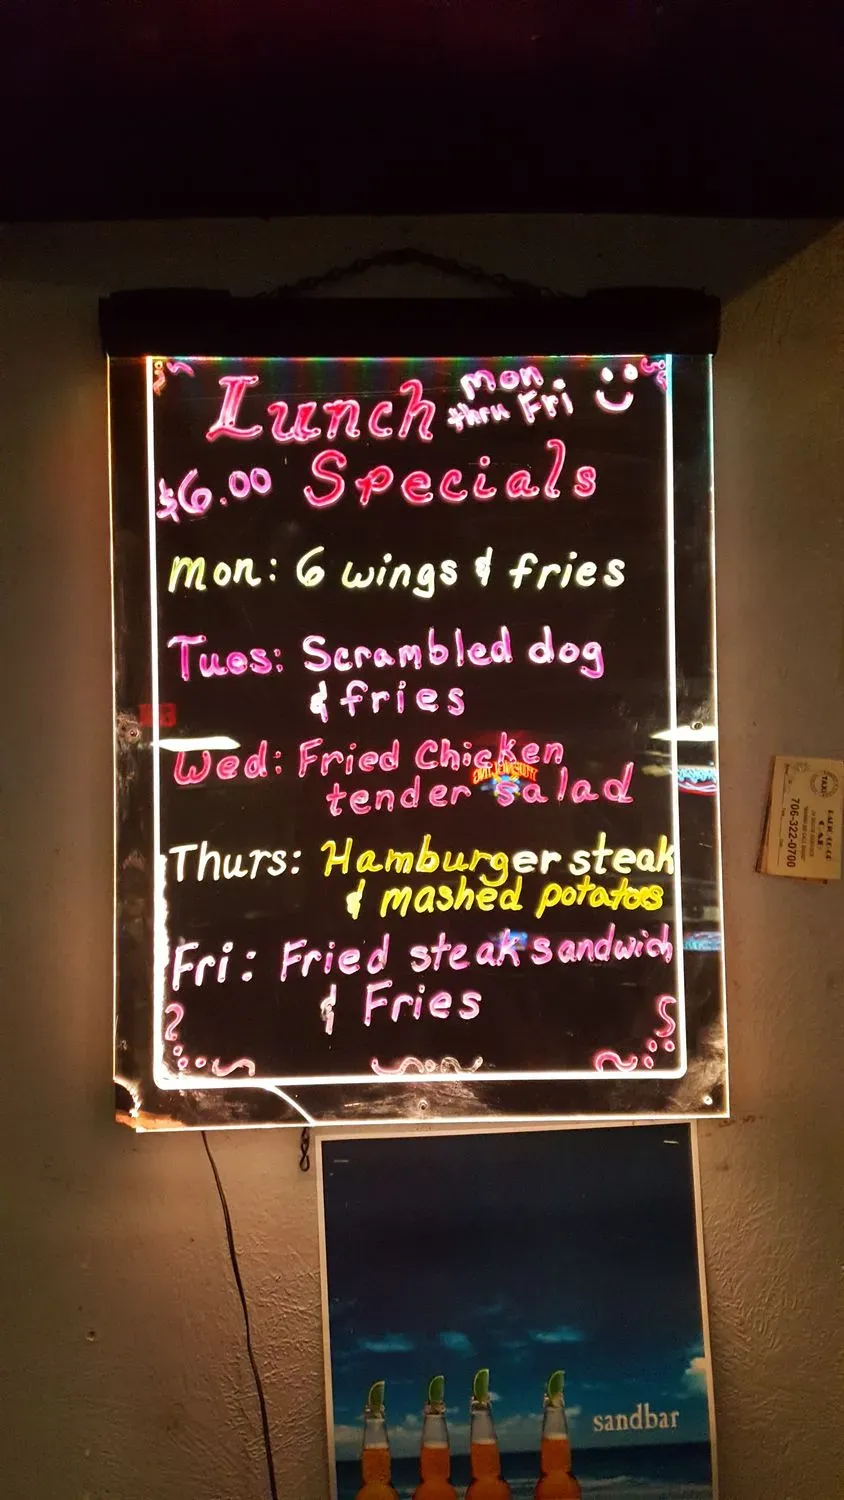 Lunch mon
thru Fri
$6.00 Specials
Mon: 6 wings & fries
Tues: Scrambled dog
& fries
Wed: Fried Chicken
tender salad
Thurs: Hamburger steak
& mashed potatoes
Fri: Fried steak sandwich
& Fries
TAXI
706-322-0700
sandbar